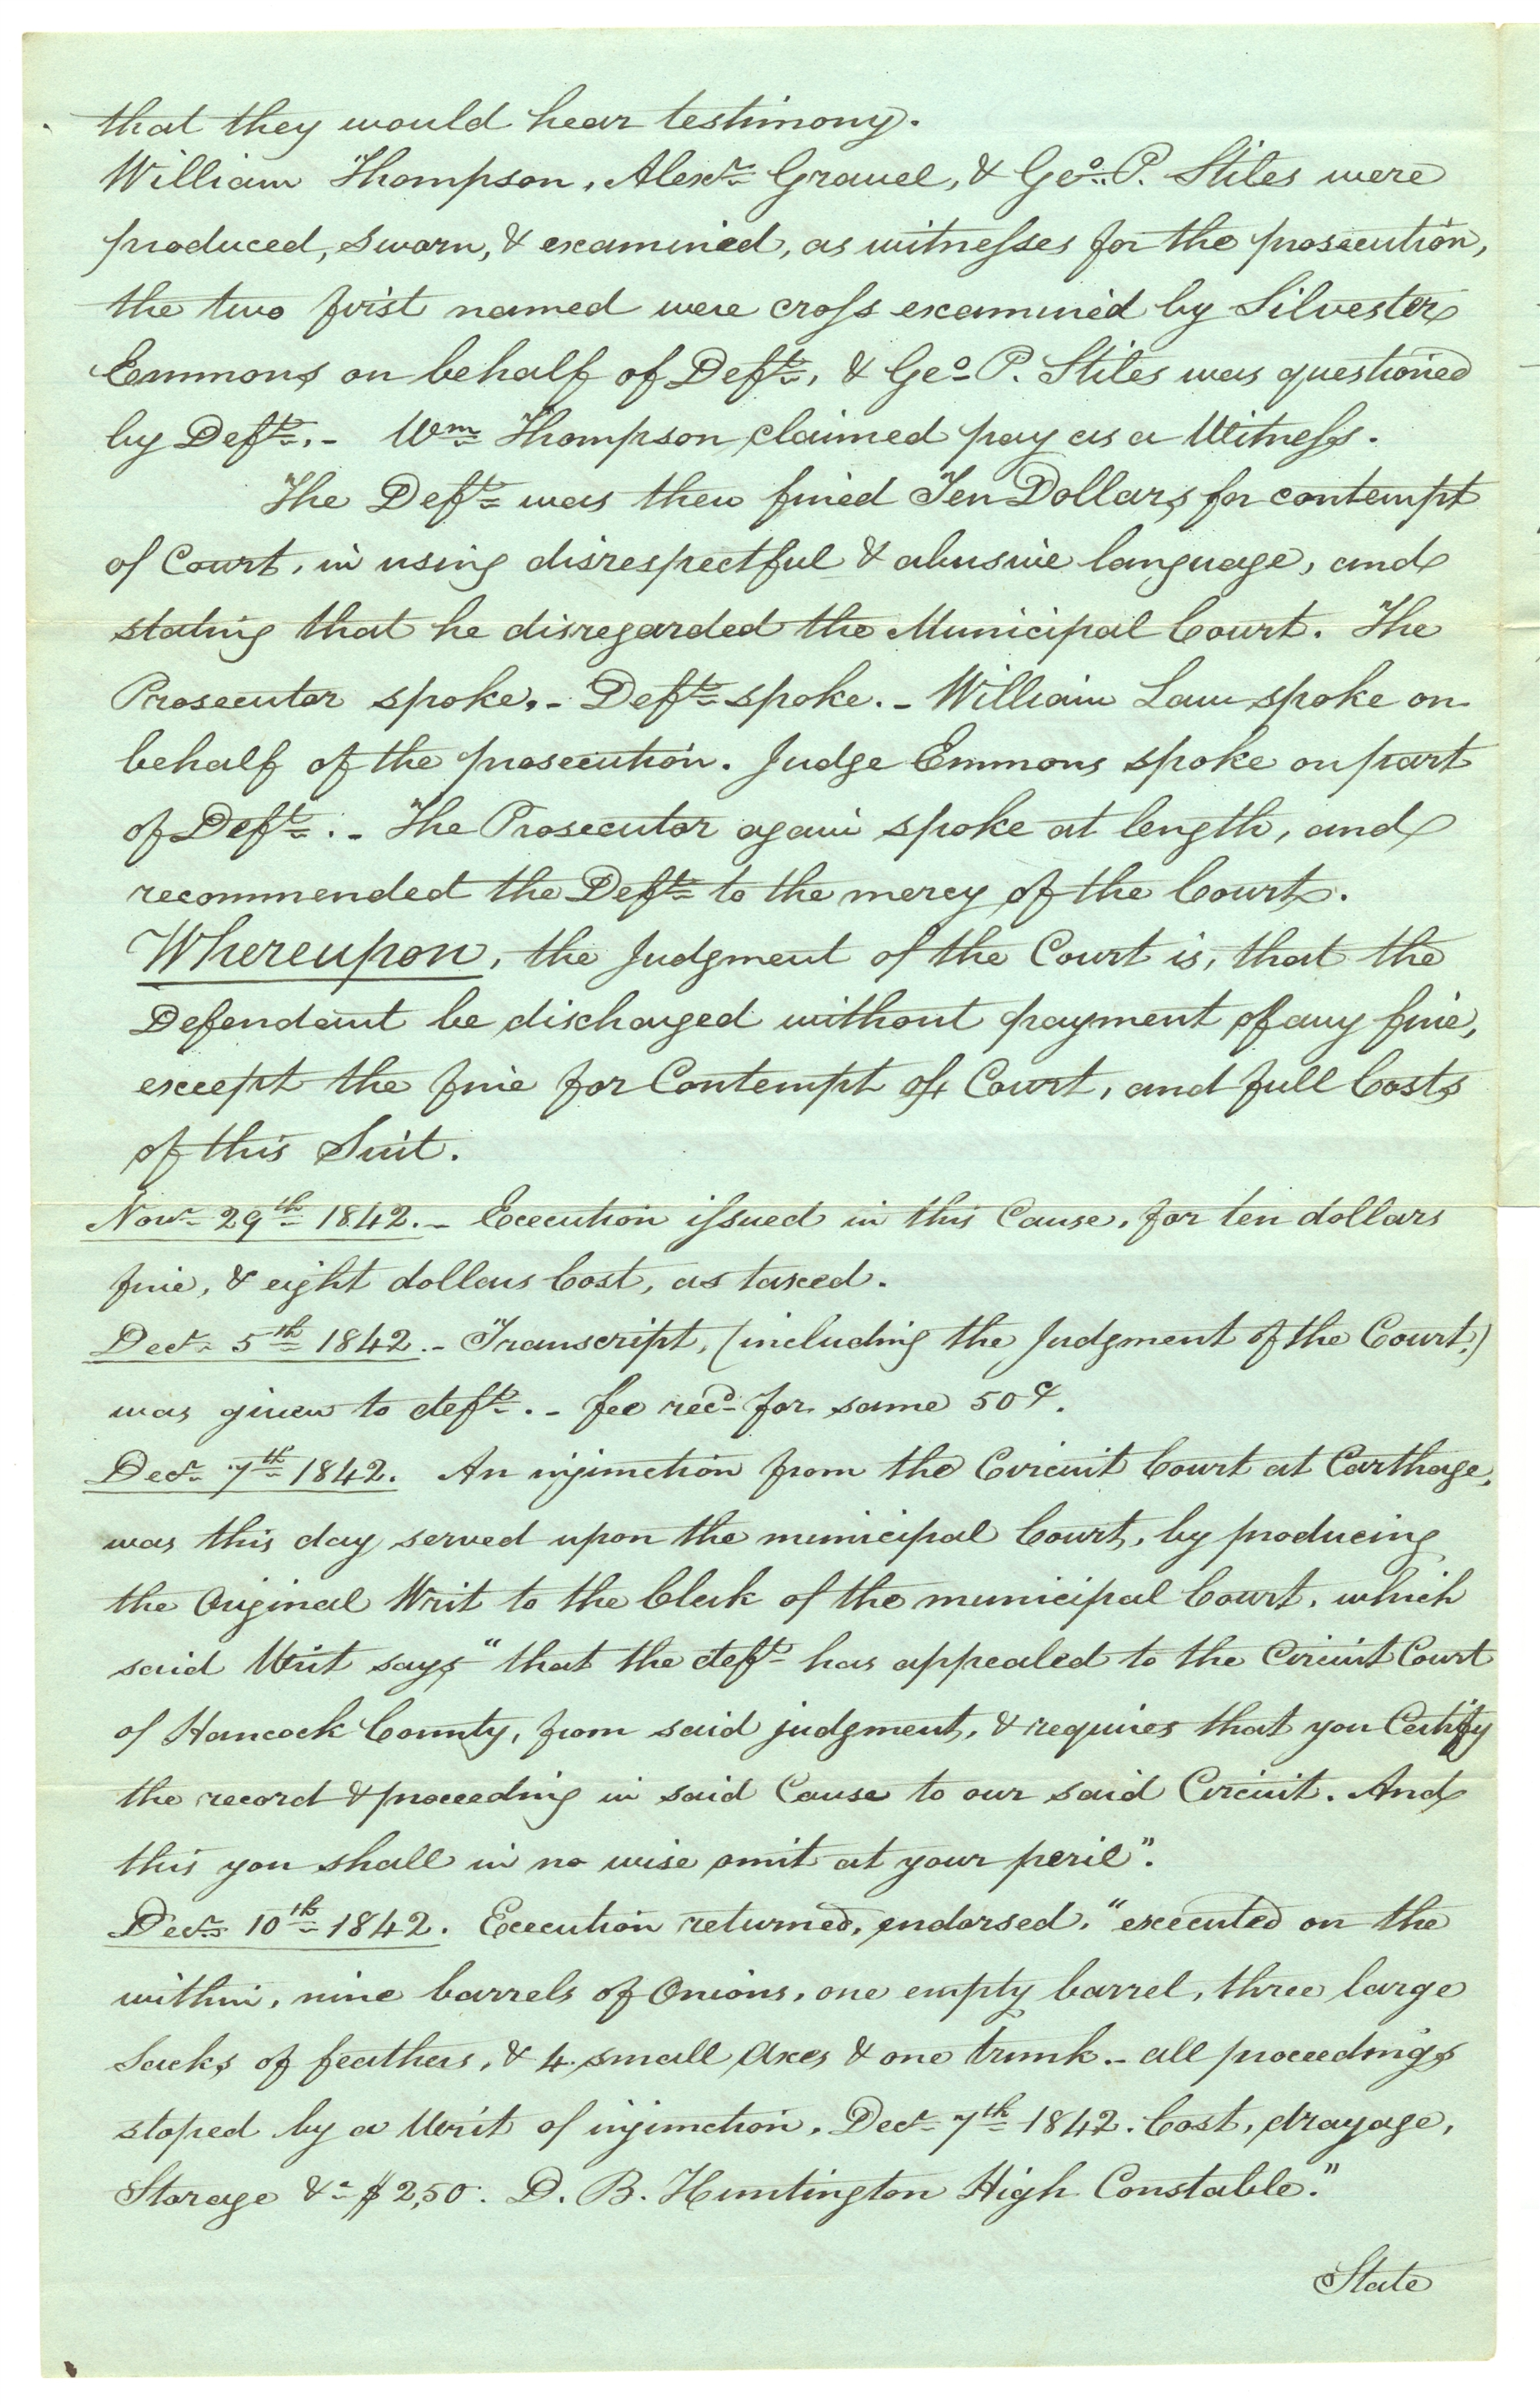 that they would hear testimony.
William Thompson, Alexr. Gravel, & Geo. P. Stiles were
produced, sworn, & examined, as witnesses for the prosecution,
the two first named were cross examined by Silvester
Emmons on behalf of Deft., & Geo. P. Stiles was questioned
by Deft.,- Wm. Thompson claimed pay as a Witness.
The Deft. was then fined Ten Dollars for contempt
of Court, in using disrespectful & abusive language, and
stating that he disregarded the Municipal Court. The
Prosecutor spoke.- Deft. spoke.- William Law spoke on
behalf of the prosecution. Judge Emmons spoke on part
of Deft..- The Prosecutor again spoke at length, and
recommended the Deft. to the mercy of the Court.
Whereupon, the Judgment of the Court is, that the
Defendant be discharged without payment of any fine,
except the fine for Contempt of Court, and full Costs
of this Suit.
Novr. 29th. 1842.- Execution issued in this Cause, for ten dollars
fine, & eight dollars Cost, as taxed.
Decr. 5th. 1842.- Transcript, (including the Judgment of the Court,)
was given to deft..- fee recd. for same 50 ¢.
Decr. 7th. 1842. An injunction from the Circuit Court at Carthage,
was this day served upon the municipal Court, by producing
the Original Writ to the Clerk of the municipal Court, which
said Writ says "that the deft. has appealed to the Circuit Court
of Hancock County, from said judgment, & requires that you Certify
the record & proceeding in said Cause to our said Circuit. And
this you shall in no wise omit at your peril".
Decr. 10th. 1842. Execution returned, endorsed, "executed on the
within, nine barrels of Onions, one empty barrel, three large
Sacks of feathers, & 4 small Axes & one trunk.- all proceedings
stoped by a Writ of injunction, Decr. 7th. 1842. Cost, drayage,
Storage &c. $2,50. D. B. Huntington High Constable."
State